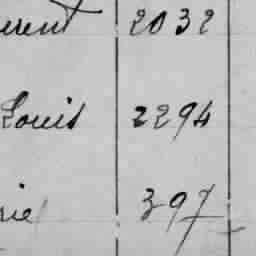 erent 2032
Louis 2294
rie 397